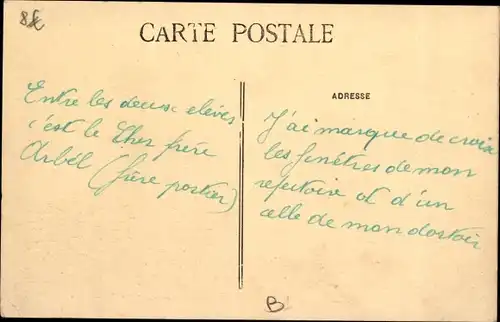 CARTE POSTALE
ADRESSE
Entre les deux élèves
c'est le Cher frère
Arbel (frère portier)
J'ai marque de croix
les fenêtres de mon
refectoire et d'un
celle de mon dortoir
B